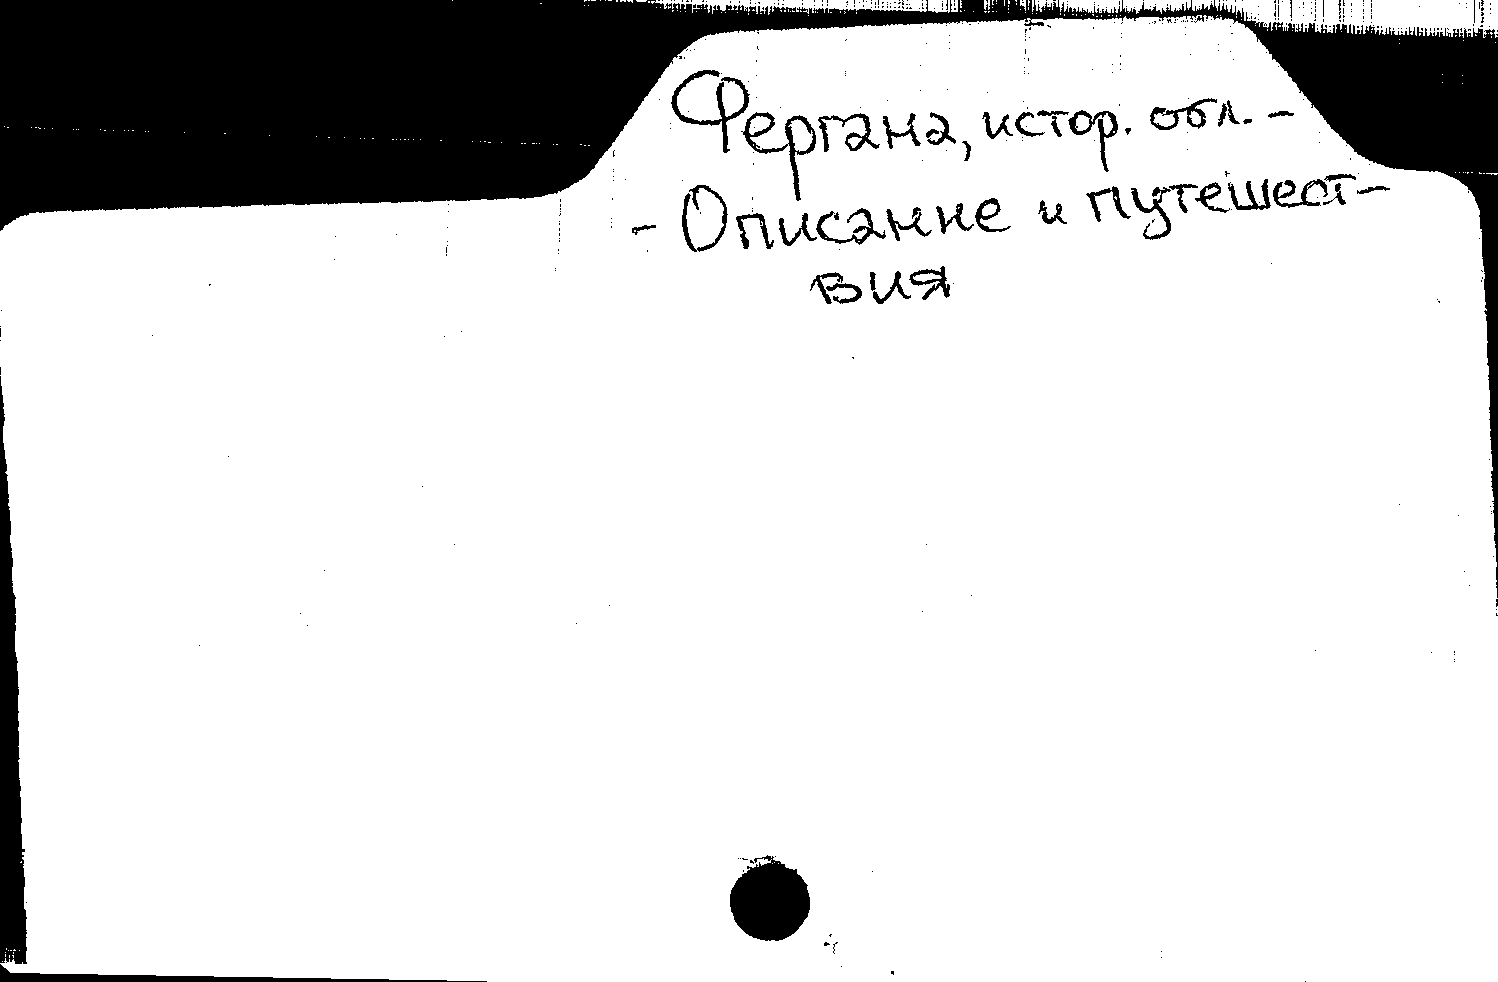 Фергана, истор. обл. -
- Описание и путешест-
вия